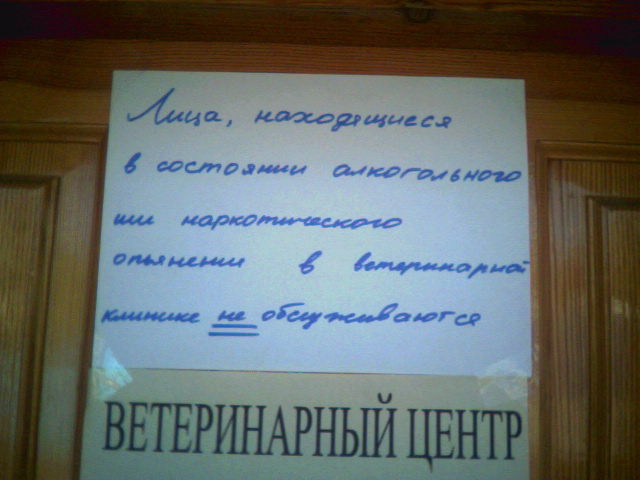 Лица, находящиеся
в состоянии алкогольного
или наркотического
опьянении в ветеринарной
клинике не обслуживаются
ВЕТЕРИНАРНЫЙ ЦЕНТР